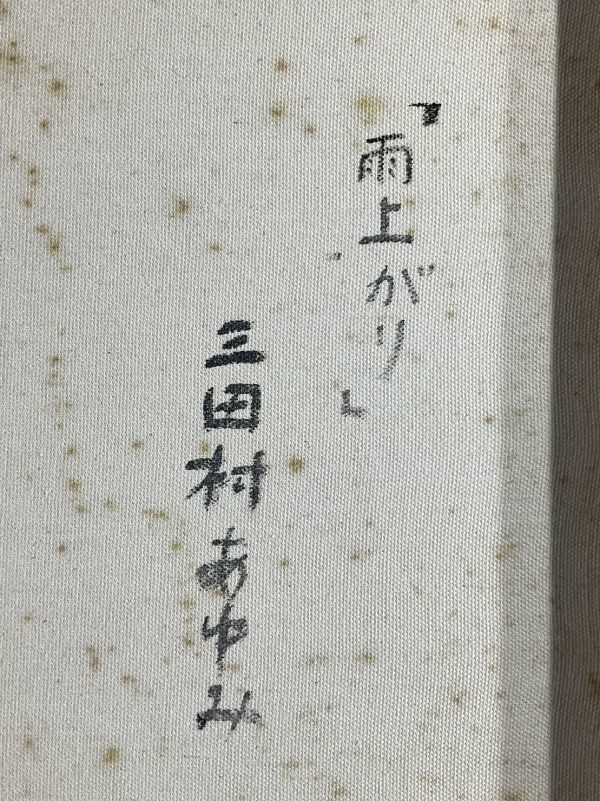 「雨上がり」
三田村あゆみ